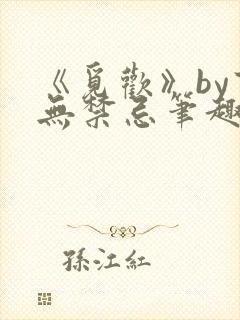 《覓歡》by
無禁忌筆趣
孫江紅